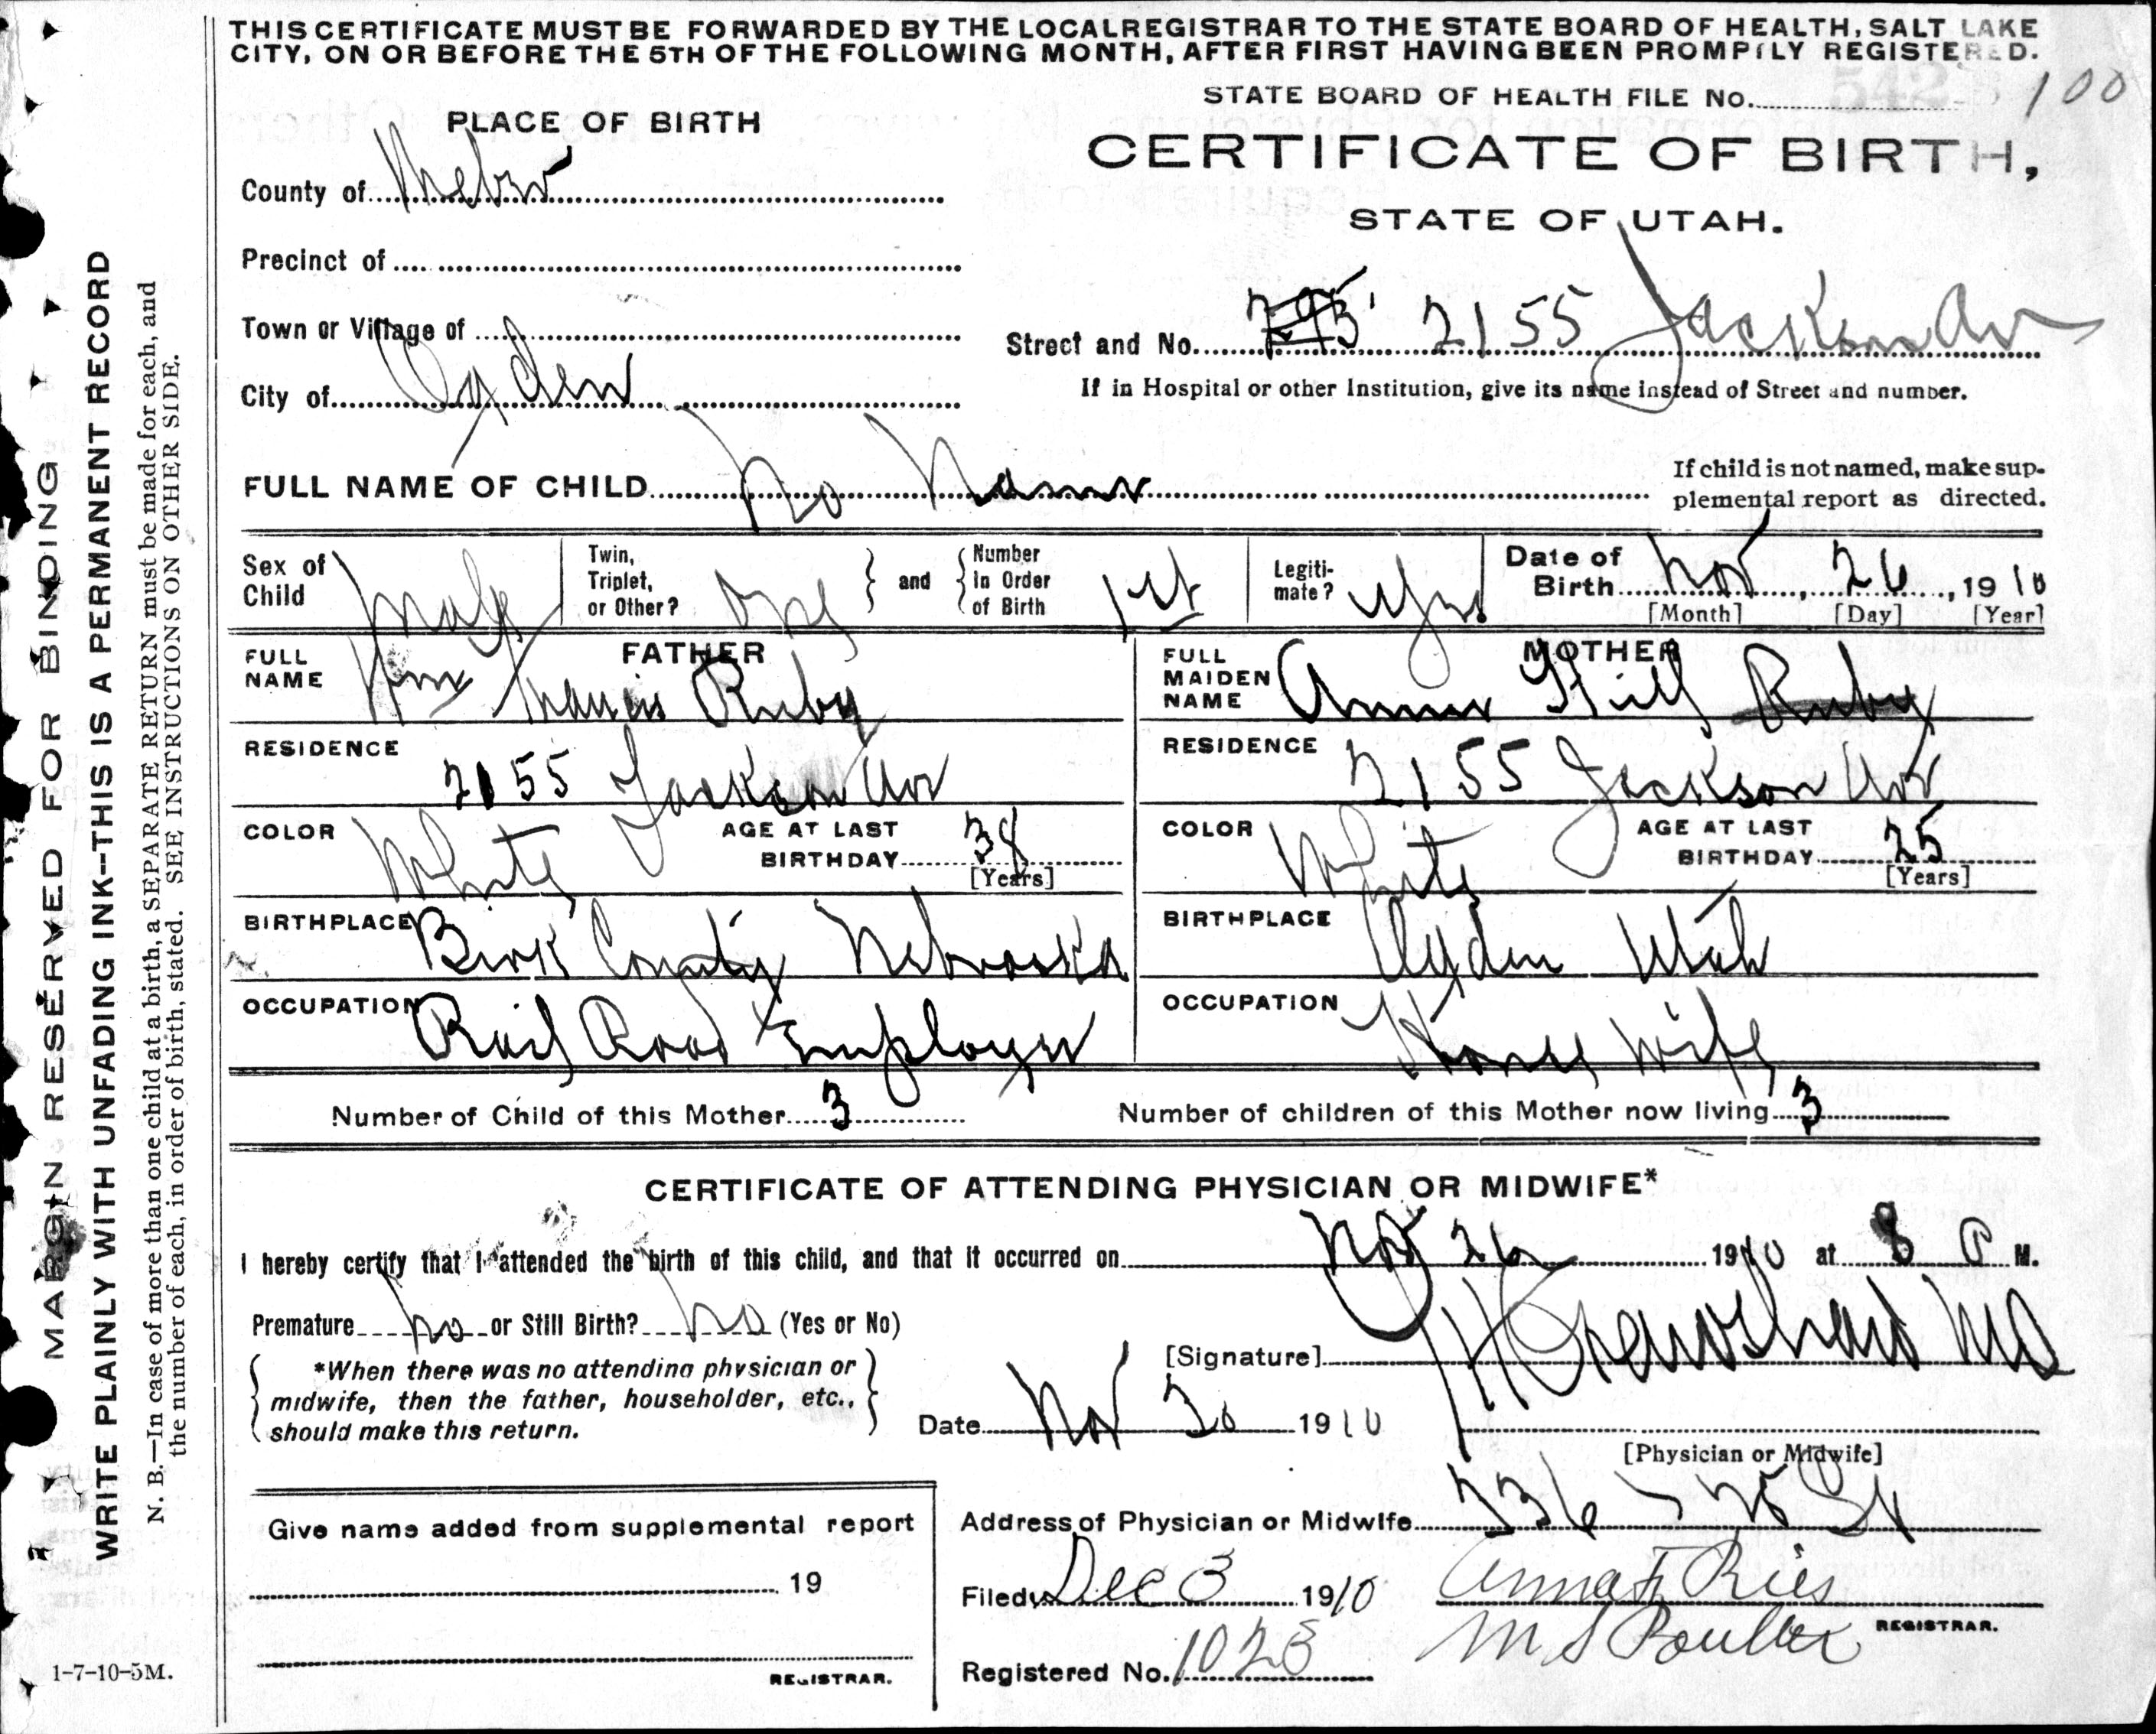 THIS CERTIFICATE MUST BE FORWARDED BY THE LOCAL REGISTRAR TO THE STATE BOARD OF HEALTH, SALT LAKE
CITY, ON OR BEFORE THE 5TH OF THE FOLLOWING MONTH, AFTER FIRST HAVING BEEN PROMPTLY REGISTERED.
STATE BOARD OF HEALTH FILE No. 100
PLACE OF BIRTH
CERTIFICATE OF BIRTH,
STATE OF UTAH.
County of Weber
Precinct of
Town or Village of
Street and No. 2155 Jackson Av
City of Ogden
If in Hospital or other Institution, give its name instead of Street and number.
FULL NAME OF CHILD No Name
If child is not named, make sup-
plemental report as directed.
Sex of Child Male
Twin, Triplet, or Other? one and Number in Order of Birth 1st
Legiti-mate? Yes
Date of Birth Nov, 26, 1910
[Month] [Day] [Year]
FATHER
FULL NAME Wm Francis Ruby
MOTHER
FULL MAIDEN NAME Annie Hill Ruby
RESIDENCE 2155 Jackson Av
RESIDENCE 2155 Jackson Av
COLOR White AGE AT LAST BIRTHDAY 38 [Years]
COLOR White AGE AT LAST BIRTHDAY 25 [Years]
BIRTHPLACE County Nebraska
BIRTHPLACE Ogden Utah
OCCUPATION Rail Road Employee
OCCUPATION House wife
Number of Child of this Mother 3
Number of children of this Mother now living 3
CERTIFICATE OF ATTENDING PHYSICIAN OR MIDWIFE*
I hereby certify that I attended the birth of this child, and that it occurred on Nov 26 1910 at 8 P M.
Premature no or Still Birth? no (Yes or No)
[Signature] MD
*When there was no attending physician or
midwife, then the father, householder, etc.,
should make this return.
Date Nov 30 1910
[Physician or Midwife]
Address of Physician or Midwife St
Give name added from supplemental report
19
REGISTRAR.
Filed Dec 3 1910 Anna F. Ries
M S Poulter REGISTRAR.
Registered No. 1025
1-7-10-5M.
MARGIN RESERVED FOR BINDING
WRITE PLAINLY WITH UNFADING INK--THIS IS A PERMANENT RECORD
N. B.—In case of more than one child at a birth, a SEPARATE RETURN must be made for each, and
the number of each, in order of birth, stated. SEE INSTRUCTIONS ON OTHER SIDE.